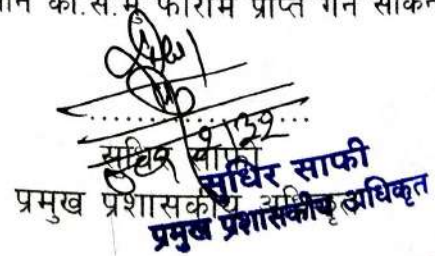 का.स.मु फाराम प्राप्त गर्न
सुधिर साफी
सुधिर साफी
प्रमुख प्रशासकीय अधिकृत
प्रमुख प्रशासकीय अधिकृत